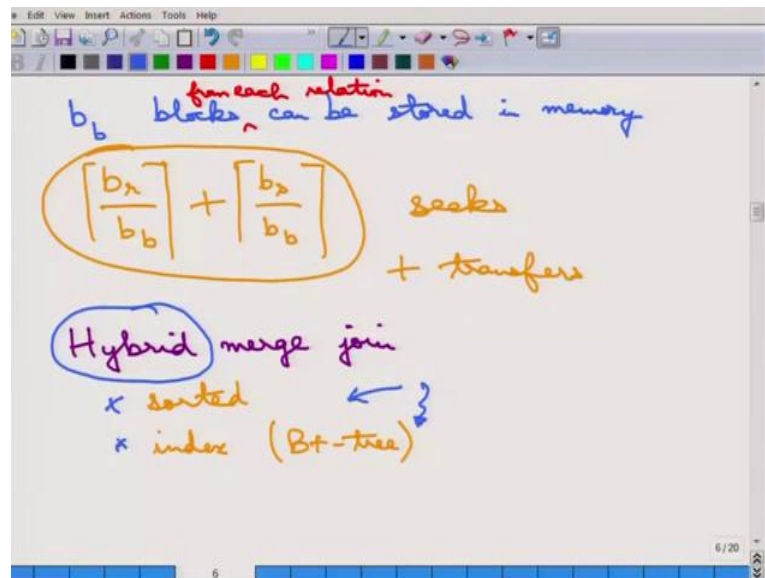 e Edit View Insert Actions Tools Help
from each relation
b_b blocks ^ can be stored in memory
⌈b_r / b_b⌉ + ⌈b_s / b_b⌉ seeks
+ transfers
Hybrid merge join
x sorted ← }
x index (B+-tree)
6/20
6